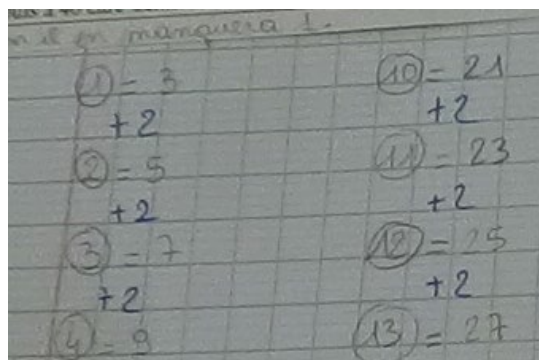 en manguera 1.
① = 3
+2
② = 5
+2
③ = 7
+2
④ = 9
⑩ = 21
+2
⑪ = 23
+2
⑫ = 25
+2
⑬ = 27